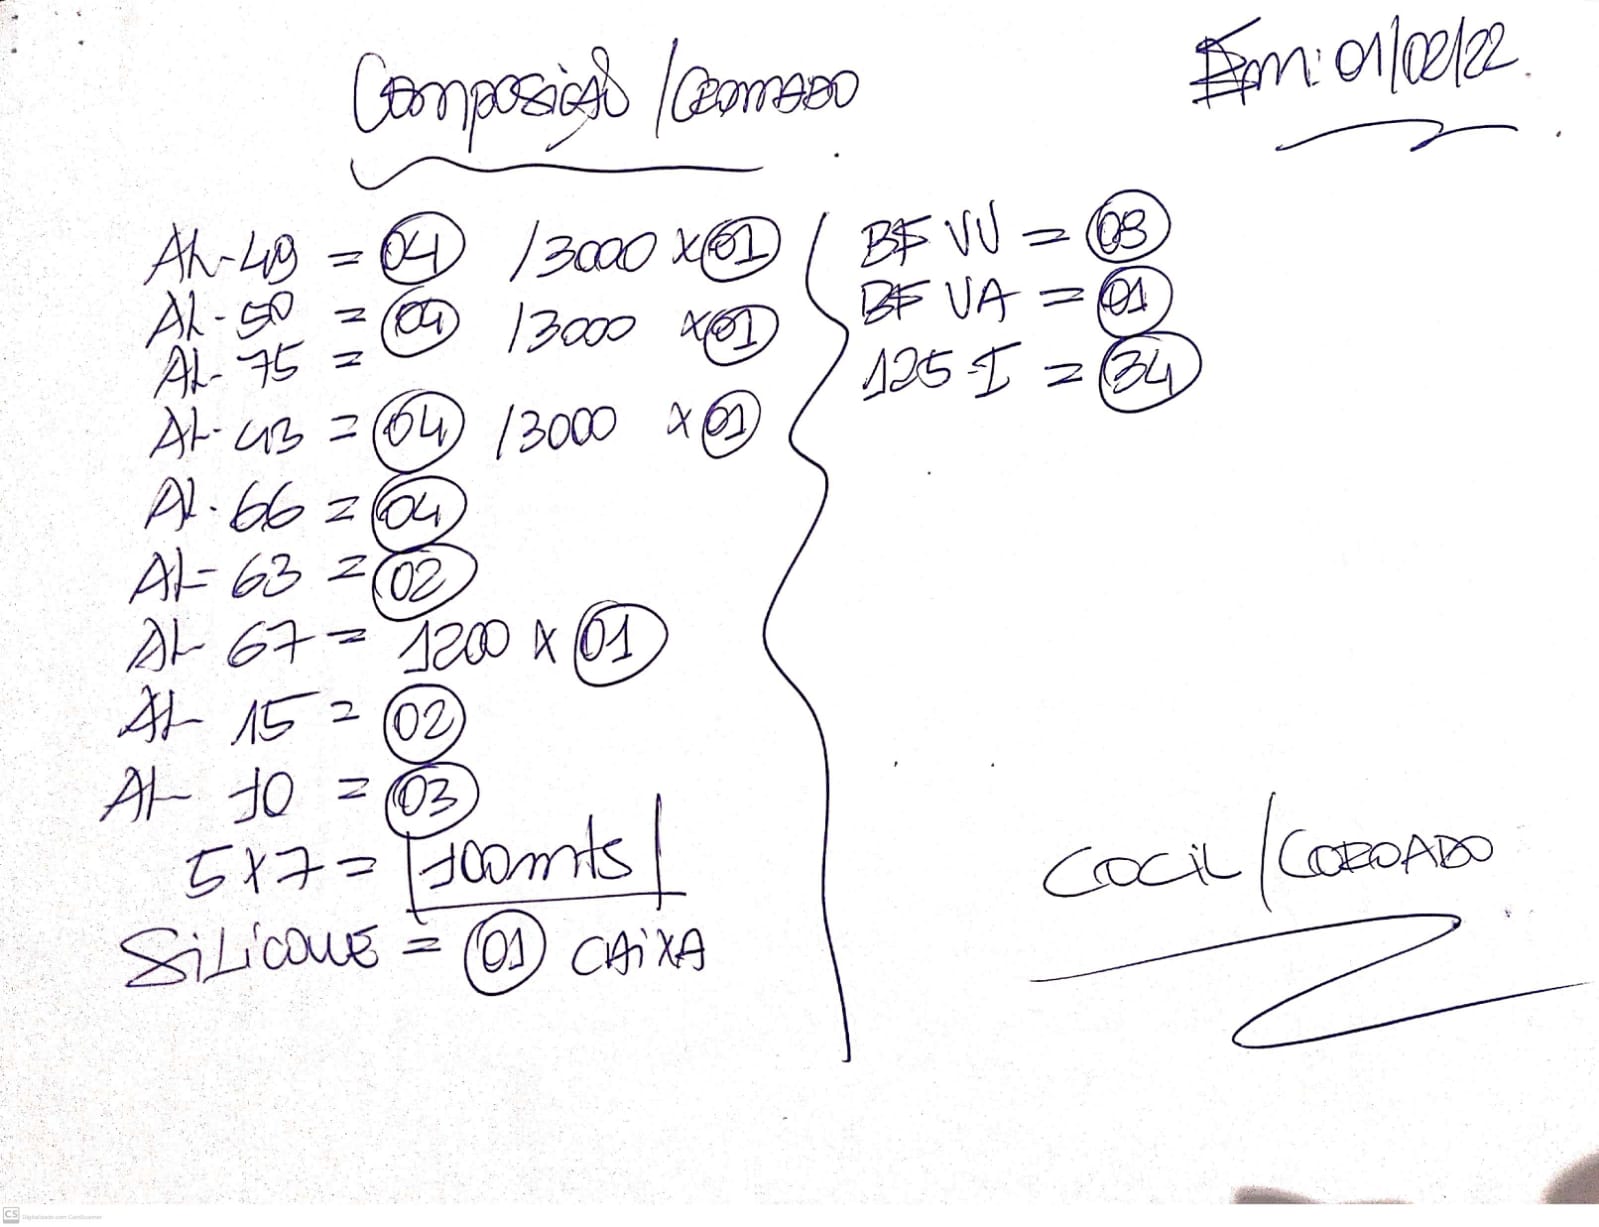 Composição / Cromado
Em: 01/02/22
AL-49 = 04 /3000 x 01
AL-50 = 04 /3000 x 01
AL-75 =
AL-43 = 04 /3000 x 01
AL-66 = 04
AL-63 = 02
AL-67 = 1200 x 01
AL-15 = 02
AL-10 = 03
5x7 = 100mts
SiLiCONE = 01 CAiXA
BF VV =
BF VA = 01
125-I = 34
COCiL / COROADO
CS Digitalizado com CamScanner